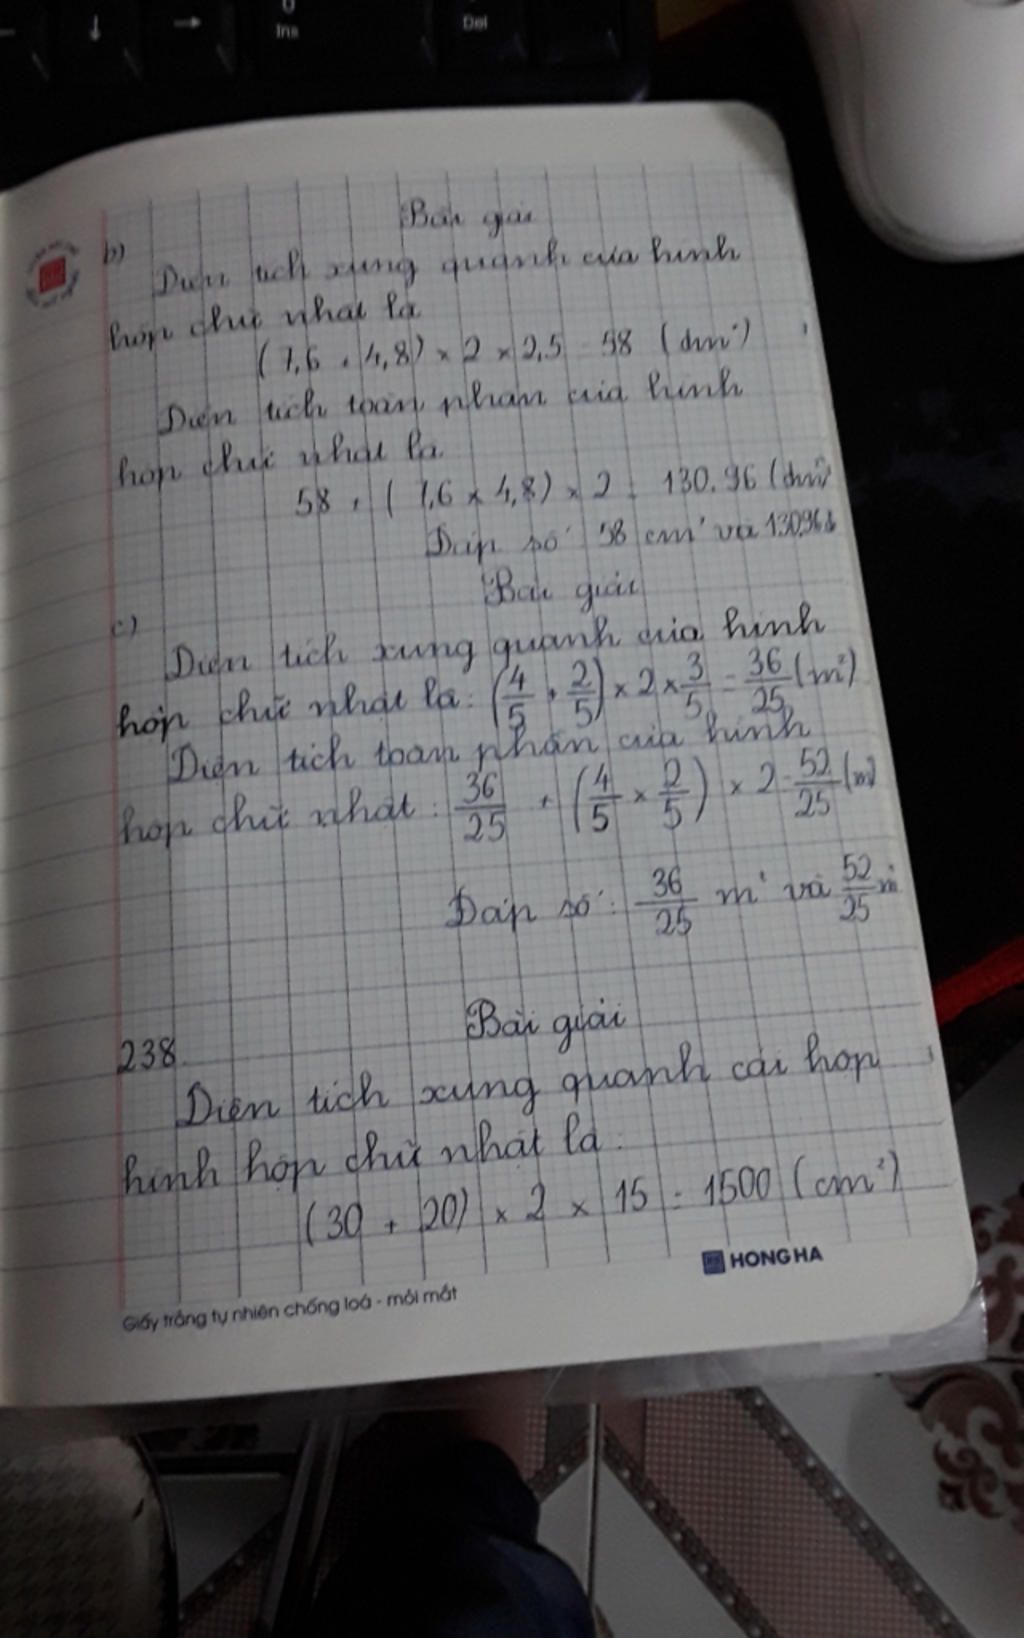 Ins
Del
Bài giải
b)
Diện tích xung quanh của hình
hộp chữ nhật là
(7,6 + 4,8) × 2 × 2,5 = 58 (dm²)
Diện tích toàn phần của hình
hộp chữ nhật là
58 + (7,6 × 4,8) × 2 = 130,96 (dm²)
Đáp số 58 cm² và 130,96 d
Bài giải
c)
Diện tích xung quanh của hình
hộp chữ nhật là: (4/5 + 2/5) × 2 × 3/5 = 36/25 (m²)
Diện tích toàn phần của hình
hộp chữ nhật: 36/25 + (4/5 × 2/5) × 2 = 52/25 (m²)
Đáp số: 36/25 m² và 52/25 m²
Bài giải
238
Diện tích xung quanh cái hộp
hình hộp chữ nhật là:
(30 + 20) × 2 × 15 = 1500 (cm²)
HONG HA
Giấy trắng tự nhiên chống loá - mỏi mắt